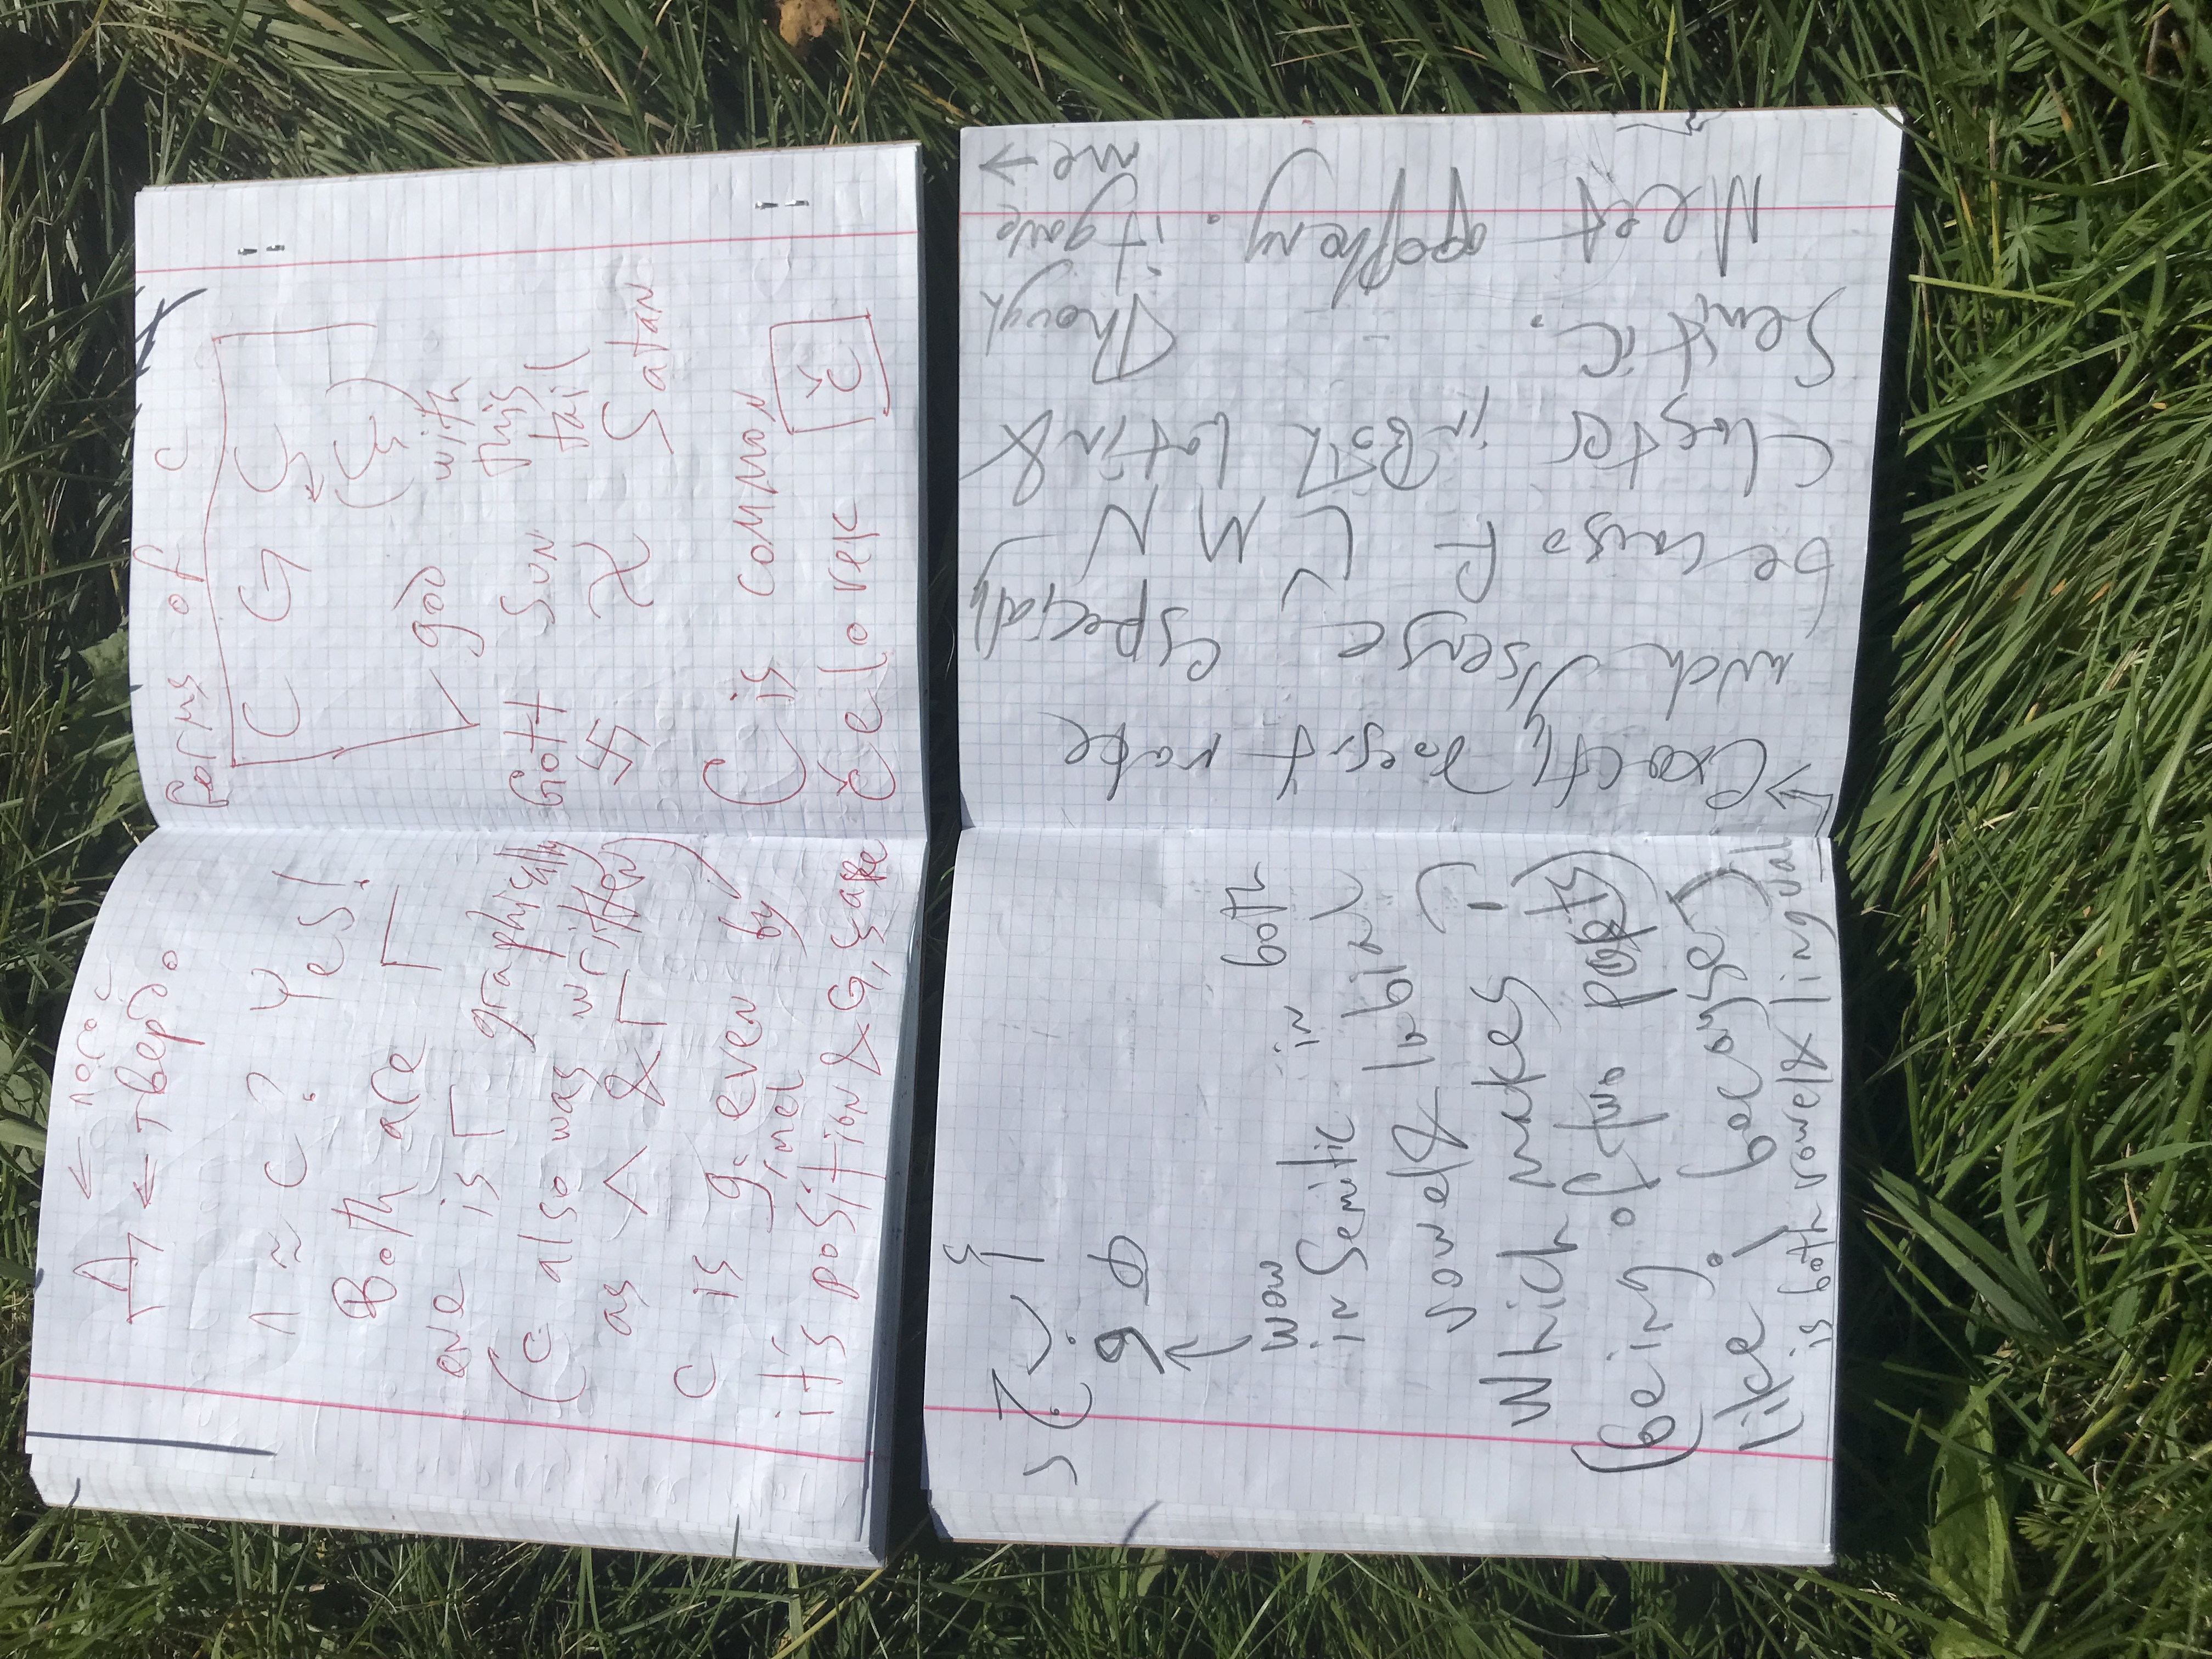 Λ ← логос
← твердо
Λ ≈ C? Yes!
Both are Γ
one is Γ graphically
(C also was written
as Λ & Γ
C is gimel even by
it's position & G, Ϛ are
forms of C
C G Ϛ
(Ϛ)
god with
this
Gott Sun tail
卐 Satan
C is common
čelovek č
ς
و ф
↑
wow
in Semitic in both
vowel & labial
Which makes ;)
(being of two parts)
like j because
is both vowel & lingual
→ Exactly doesn't make
much sense especially
because L M N
Cluster in Both Latin &
Semitic. Though
Meet apopheny. it gave
me →